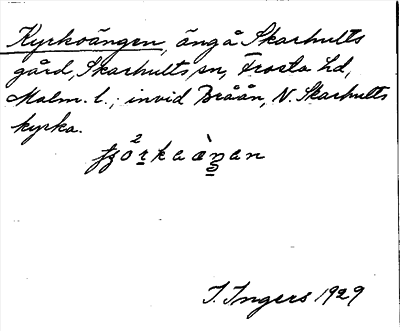 Kyrkoängen, äng å Skarhults
gård, Skarhults sn, Frosta hd,
Malm. l.; invid Bråån, N. Skarhults
kyrka.
I. Ingers 1929